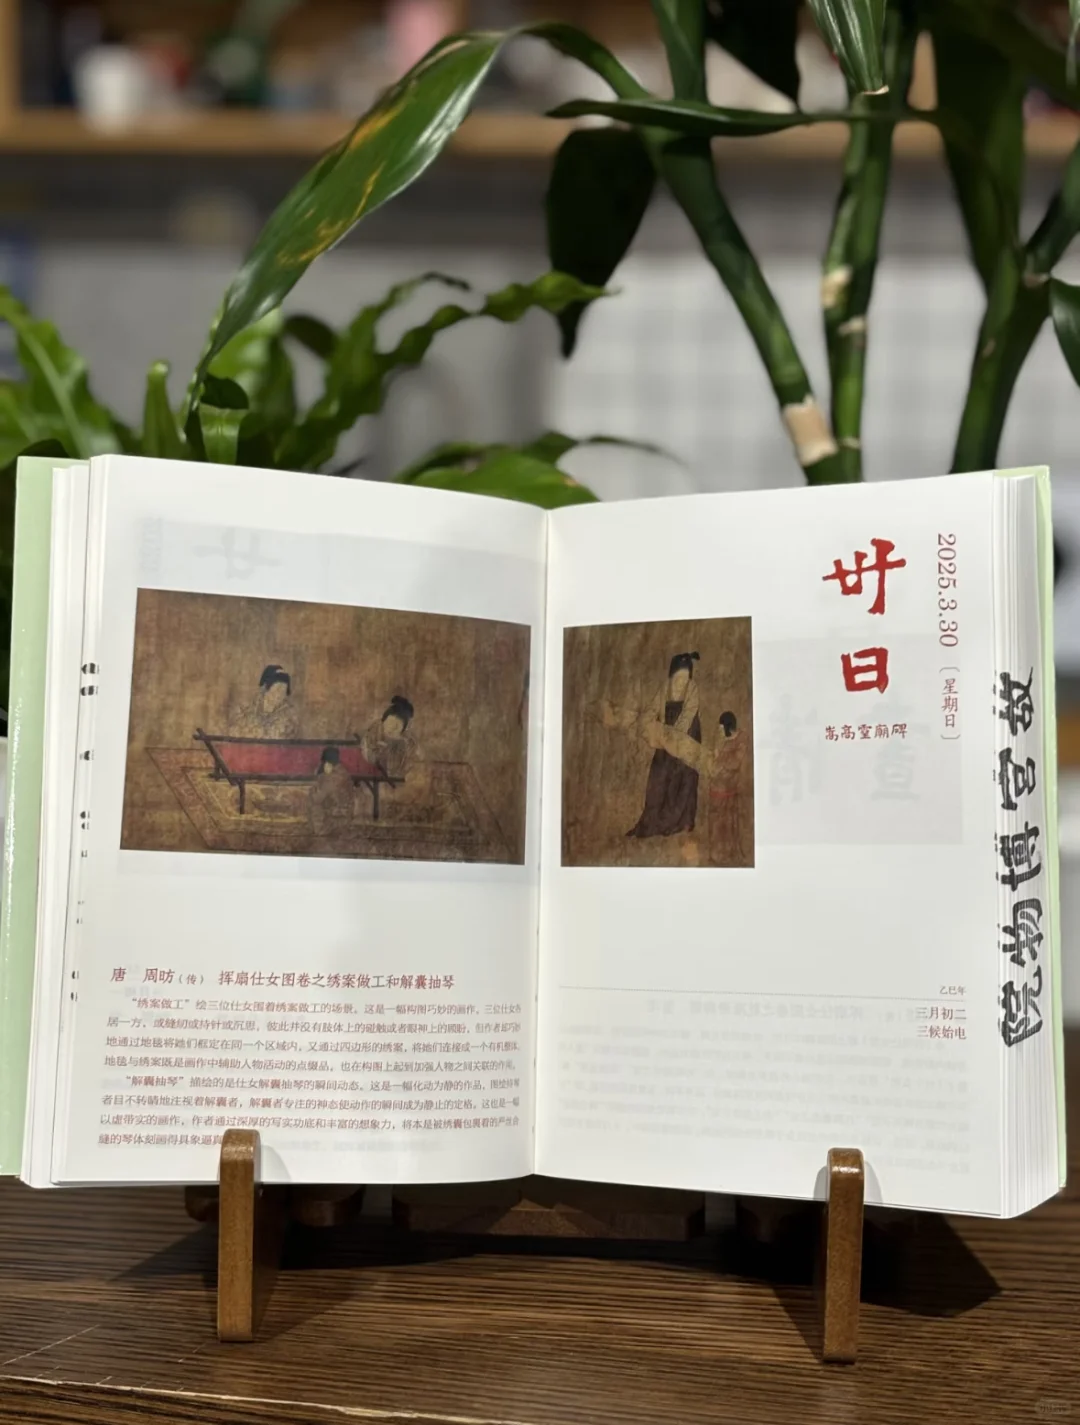 唐 周昉（传） 挥扇仕女图卷之绣案做工和解囊抽琴
“绣案做工”绘三位仕女围着绣案做工的场景。这是一幅构图巧妙的画作，三位仕女各
居一方，或缝纫或持针或沉思，彼此并没有肢体上的碰触或者眼神上的顾盼，但作者却巧妙
地通过地毯将她们框定在同一个区域内，又通过四边形的绣案，将她们连接成一个有机整体。
地毯与绣案既是画作中辅助人物活动的点缀品，也在构图上起到加强人物之间关联的作用。
“解囊抽琴”描绘的是仕女解囊抽琴的瞬间动态。这是一幅化动为静的作品，图绘
者目不转睛地注视着解囊者，解囊者专注的神态使动作的瞬间成为静止的定格。这也是一幅
以虚带实的画作，作者通过深厚的写实功底和丰富的想象力，将本是被绣囊包裹着的严丝合
缝的琴体刻画得具象逼真
2025.3.30 〔星期日〕
卅日
嵩高灵庙碑
乙巳年
三月初二
三候始电
故宫博物院